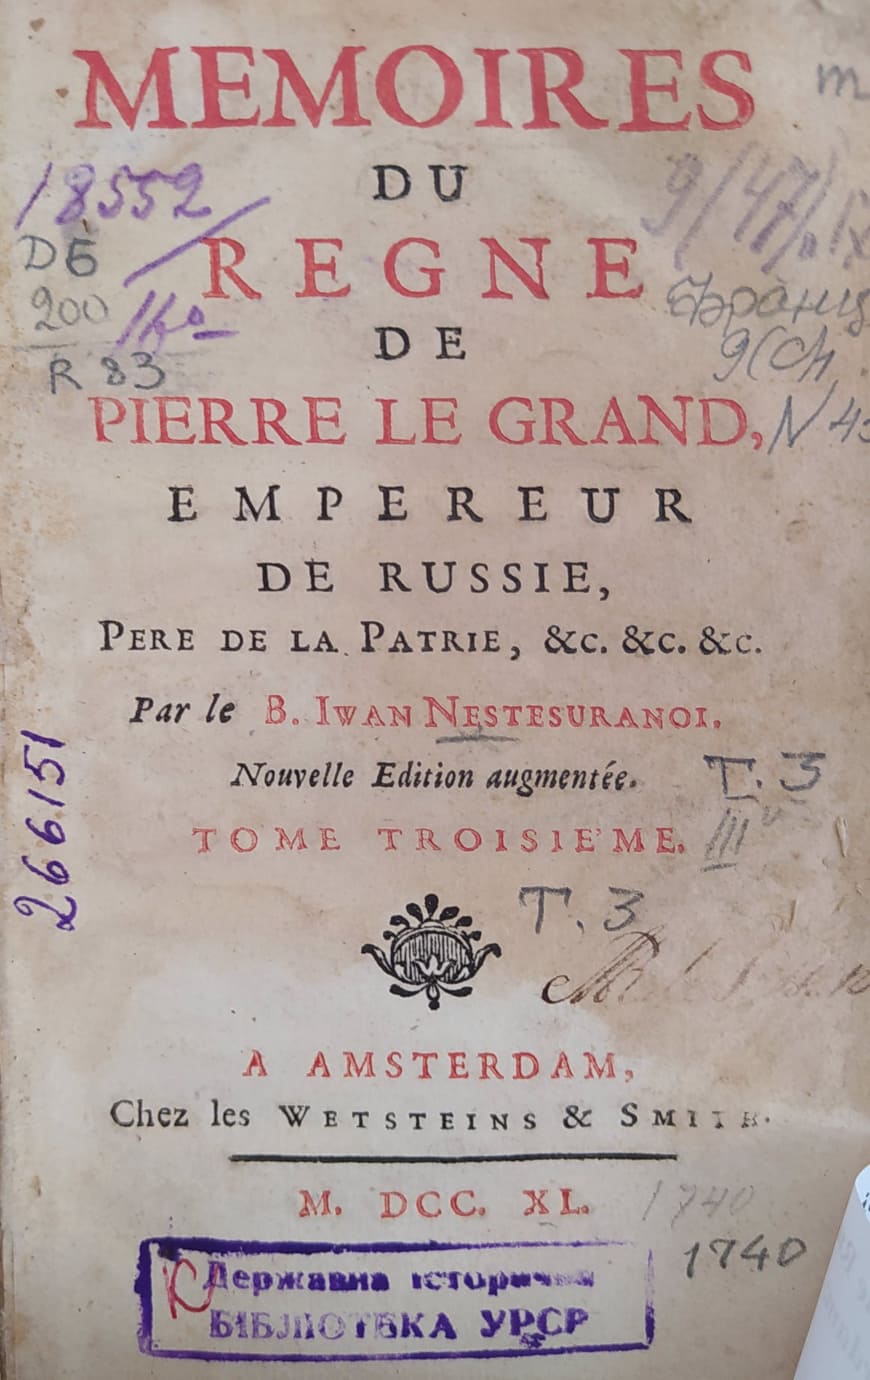 MEMOIRES
DU
18552
REGNE
DE
200
R 83
DE
PIERRE LE GRAND,
EMPEREUR
DE RUSSIE,
PERE DE LA PATRIE, &c. &c. &c.
Par le B. IWAN NESTESURANOI.
Nouvelle Edition augmentée.
T. 3
TOME TROISIE'ME.
III
266151
T. 3
A AMSTERDAM,
Chez les WETSTEINS & SMITH.
M. DCC. XL.
1740
1740
Державна історична
БІБЛІОТЕКА УРСР